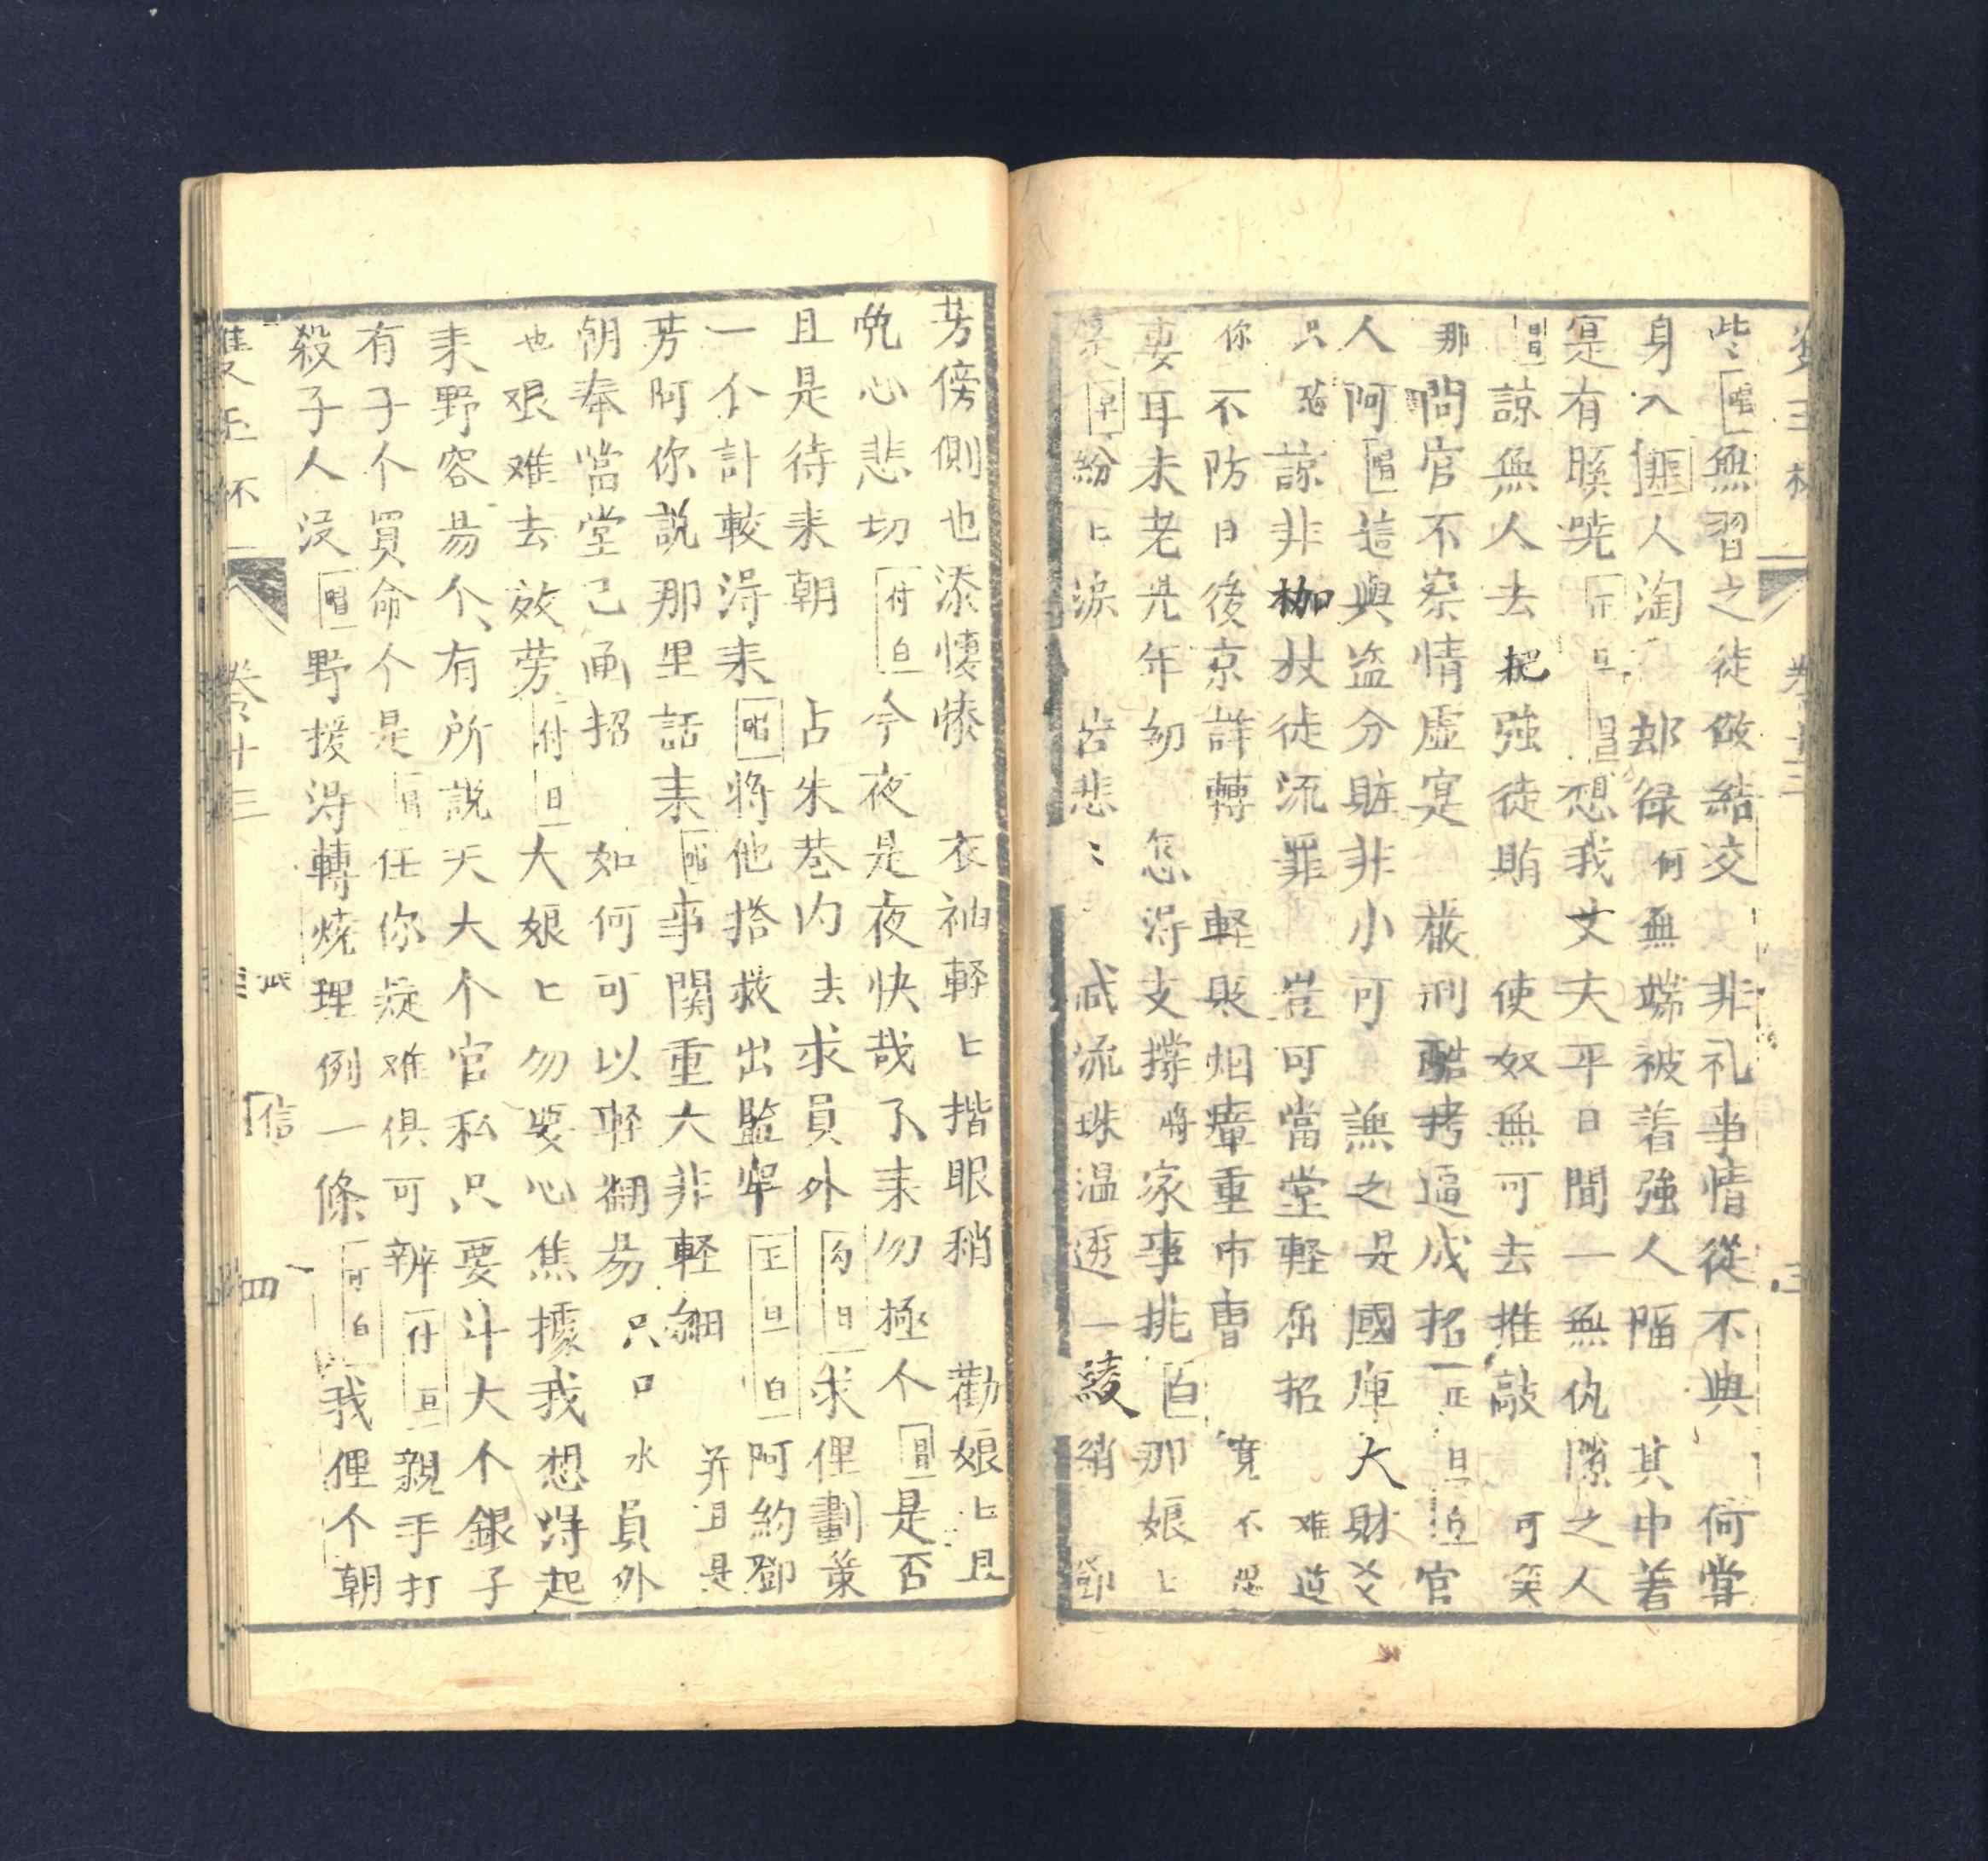 些唱無習之徒做結交 非礼事情從不與 何嘗
身入匪人淘 郄録何無端被着強人陋 其中着
寔有暌暁 想我丈夫平日間一無仇隙之人
唱諒無人去把強徒賄 使奴無可去推敲 可笑
那問官不察情虚寔 嚴刑酷拷逼成招 正旦白官
人阿唱這與盗分賍非小可 譙之是國庫大財爻
只恐諒非枷杖徒流罪 豈可當堂軽屈招 难道
你不防日後京詳轉 軽則烟瘴重市曹 寛不思
妻耳未老児年幼 怎淂支撑將家事挑白那娘〻
紛〻淚 苦悲〻 減流珠温透一綾綃 鄧
芳傍側也添悽慘 衣袖軽〻揩眼稍 勸娘〻且
兊心悲切付白今夜是夜快哉不来勿極个唱是否
且是待来朝 占朱巷内去求員外白求俚劃策
一个計較淂来唱將他搭救出監牢正旦白阿約鄧
芳阿你説那里話来唱事関重大非軽細 并且是
朝奉當堂已画招 如何可以軽翻易只口水員外
也艰难去效劳付白大娘〻勿要心焦據我想淂起
来野容易个有所説天大个官私只要斗大个銀子
有子个買命个是唱任你疑难俱可辨付白親手打
殺子人没唱野援淂轉燒理例一條付白我俚个朝
雙玉杯 卷十三 信 四